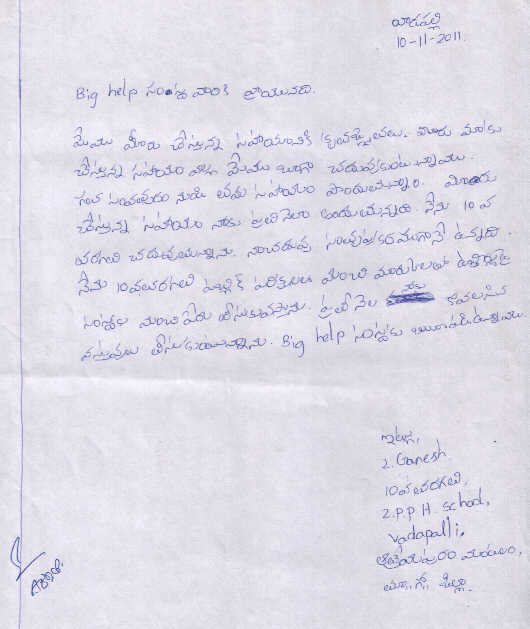 వాడపల్లి
10-11-2011.
Big help సంస్థ వారికి వ్రాయునది.
మేము మీరు చేస్తున్న సహాయానికి కృతజ్ఞతలు. మీరు మాకు
చేస్తున్న సహాయం వల్ల మేము బాగా చదువుకుంటున్నాము.
గత సంవత్సరం నుండి లను సహాయం పొందుతున్నాం. మీరు
చేస్తున్న సహాయం నాకు ప్రతి నెలా అందుతున్నది. నేను 10 వ
తరగతి చదువుతున్నాను. నా చదువు సంతృప్తికరముగానే ఉన్నది.
నేను 10వ తరగతి పబ్లిక్ పరీక్షలలో మంచి మార్కులతో
సంస్థకు మంచి పేరు తీసుకువస్తాను. ప్రతి నెల నాకు కావలసిన
వస్తువులు తీసుకుంటున్నాను. Big help సంస్థకు
ఇట్లు,
Z. Ganesh.
10వ తరగతి,
Z.P.P.H. School,
Vadapalli,
ఆత్రేయపురం మండలం,
తూ. గో. జిల్లా.